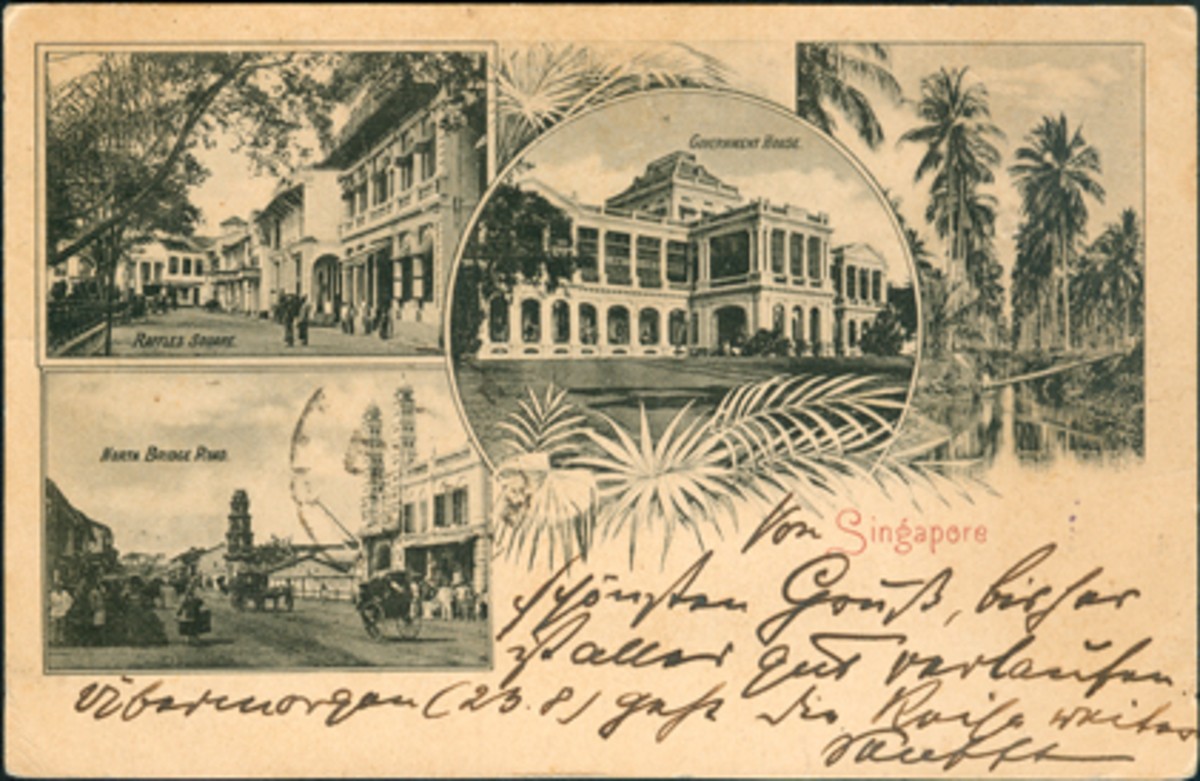 GOVERNMENT HOUSE.
RAFFLES SQUARE.
NORTH BRIDGE ROAD.
Von Singapore
schönsten Gruß, bisher
ist alles gut verlaufen.
Übermorgen (23.8) geht die Reise weiter